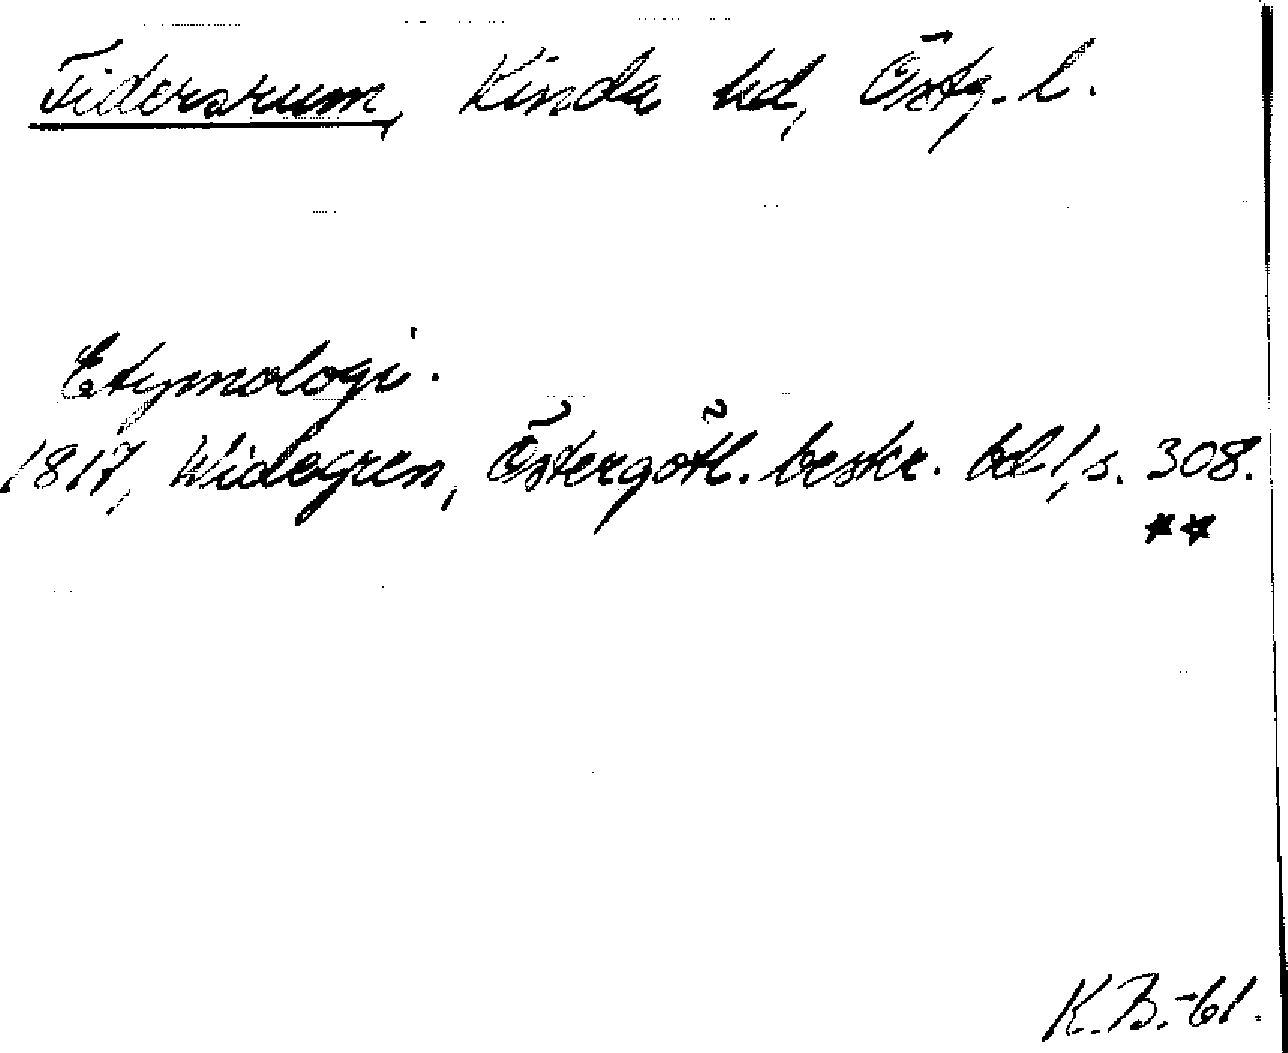 Tidersrum, Kinda hd, Östg. l.
Etymologi.
1817, Widegren, Östergötl. beskr. bd 1, s. 308.
**
K.B.-61.